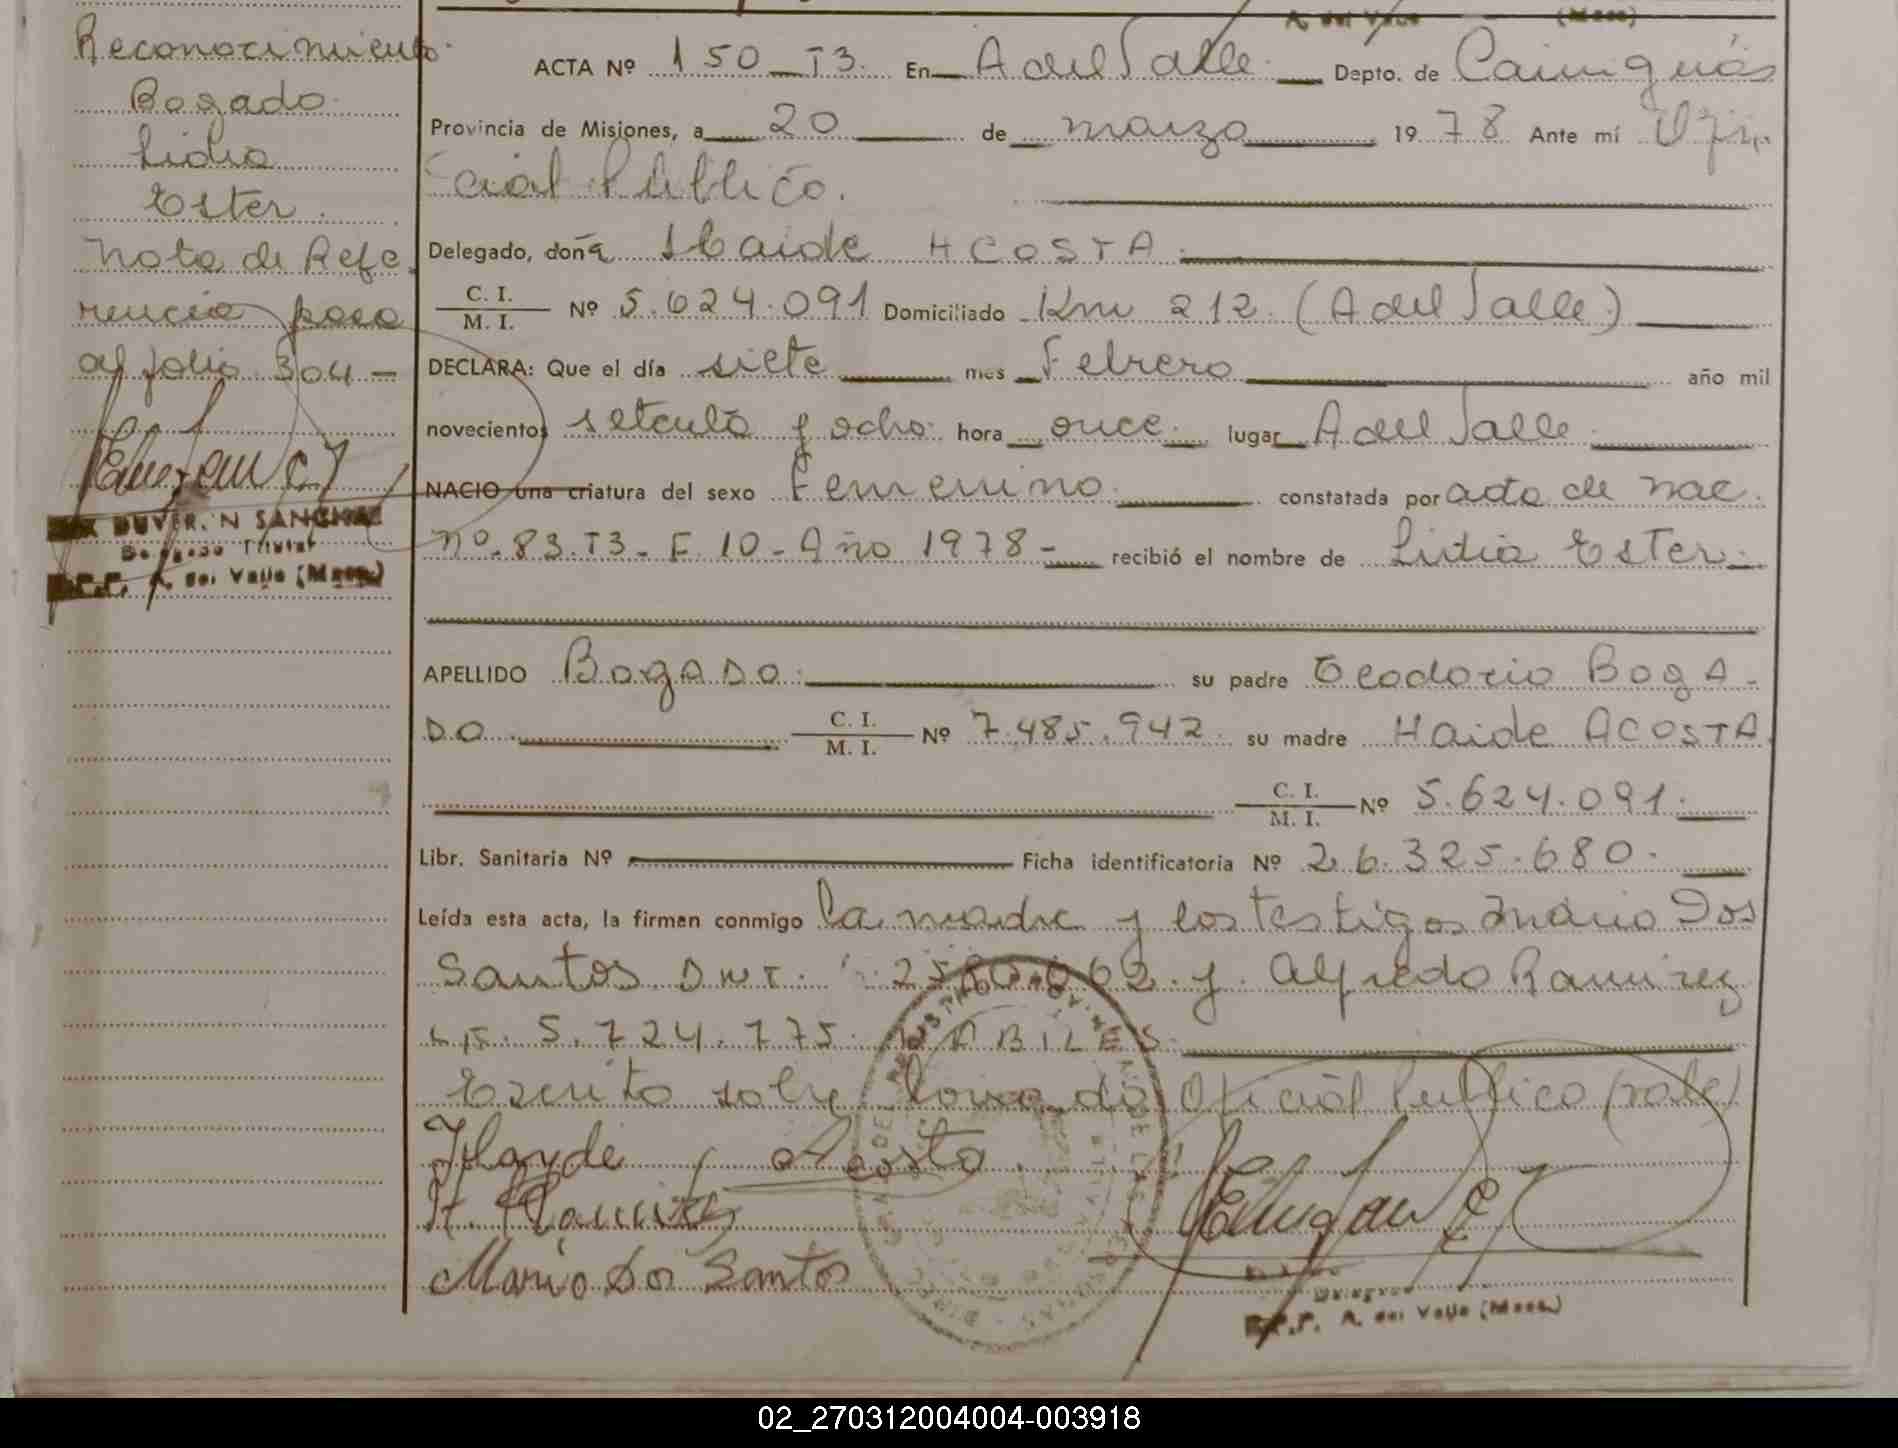 Reconocimiento
Bogado
Lidia
Ester.
Nota de Refe-
rencia pasa
al folio 304 -
DUVER. N SANCHEZ
Delegado Titular
A. del Valle (Mnes.)
A. del Valle (Mnes)
ACTA Nº 150 - T3. En A del Valle. Depto. de Cainguás
Provincia de Misiones, a 20 de marzo 1978 Ante mí Ofi-
cial Público.
Delegado, doña Haide ACOSTA.
C. I. / M. I. Nº 5.624.091 Domiciliado Km 212. (A del Valle)
DECLARA: Que el día siete mes Febrero año mil
novecientos setenta y ocho hora once. lugar A del Valle.
NACIO una criatura del sexo Femenino. constatada por acta de nac.
nº. 83. T3 - F 10 - Año 1978 - recibió el nombre de Lidia Ester.
APELLIDO BogADO. su padre Teodorio BogA-
DO. C. I. / M. I. Nº 7.485.942. su madre Haide ACOSTA.
C. I. / M. I. Nº 5.624.091.
Libr. Sanitaria Nº Ficha identificatoria Nº 26.325.680.
Leída esta acta, la firman conmigo la madre y los testigos Mario Dos
Santos. y. Alfredo Ramirez
5.724.775. HABILES.
Escrito sobre borrado Oficial Publico (vale)
Hayde Acosta.
A. Ramirez
Mario Dos Santos
A. del Valle (Mnes.)
02_270312004004-003918